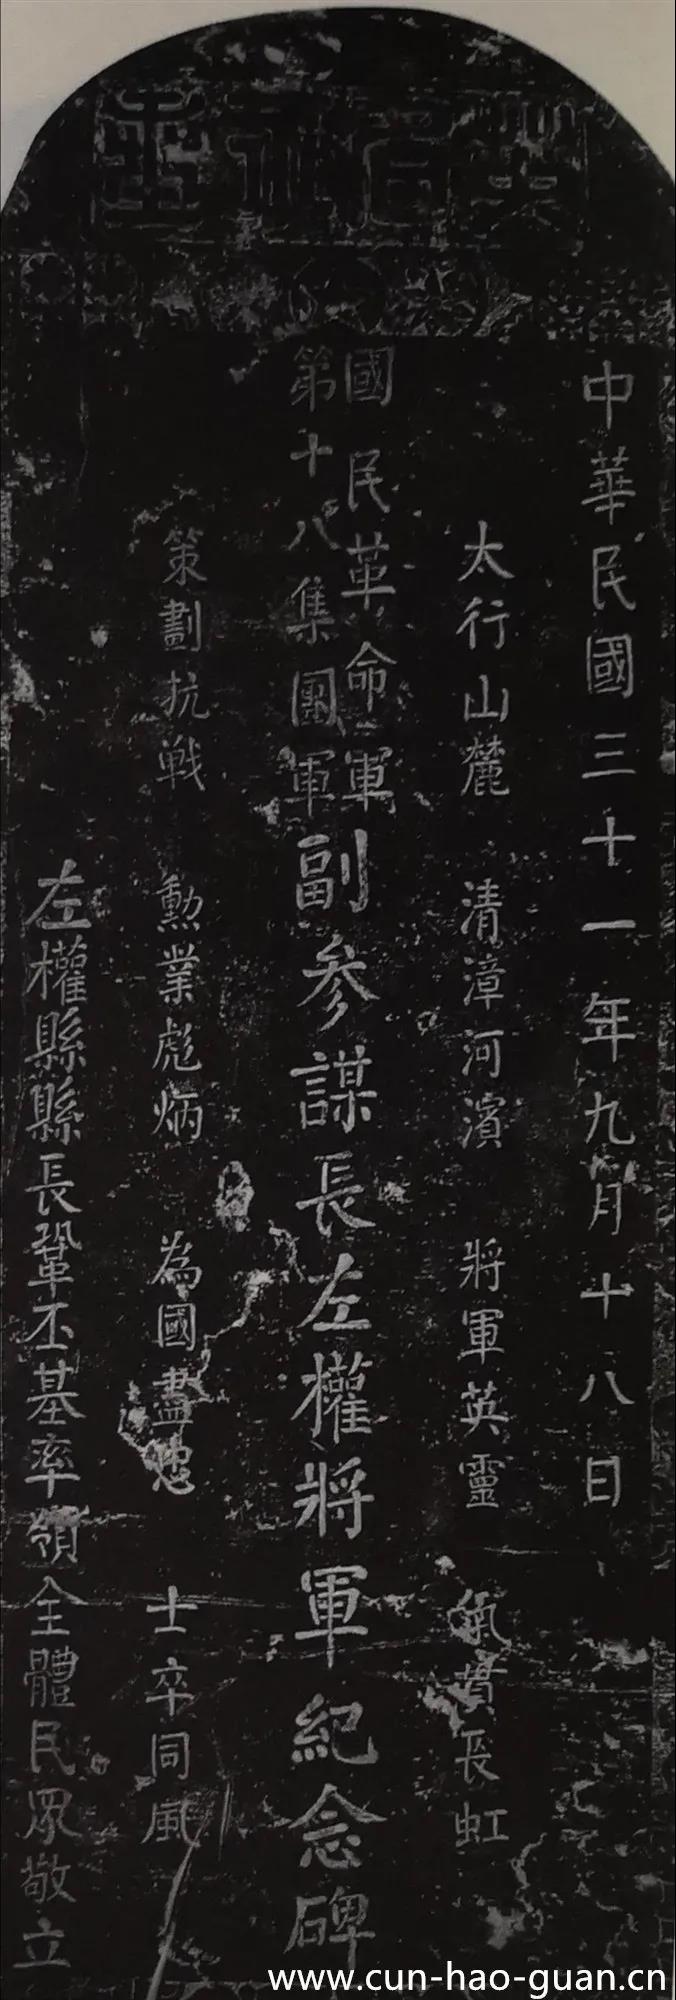 中華民國三十一年九月十八日
太行山麓 清漳河濱 將軍英靈 氣貫長虹
國民革命軍
第十八集團軍
副參謀長左權將軍紀念碑
策劃抗戰 勳業彪炳 為國盡忠 士卒同風
左權縣縣長鞏丕基率領全體民眾敬立
www.cun-hao-guan.cn